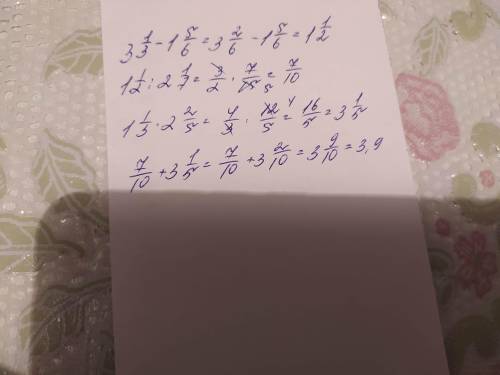 3 1/3 - 1 5/6 = 3 2/6 - 1 5/6 = 1 1/2
1 1/2 : 2 1/7 = 3/2 · 7/15 5 = 7/10
1 1/3 · 2 2/5 = 4/3 · 12 4/5 = 16/5 = 3 1/5
7/10 + 3 1/5 = 7/10 + 3 2/10 = 3 9/10 = 3,9